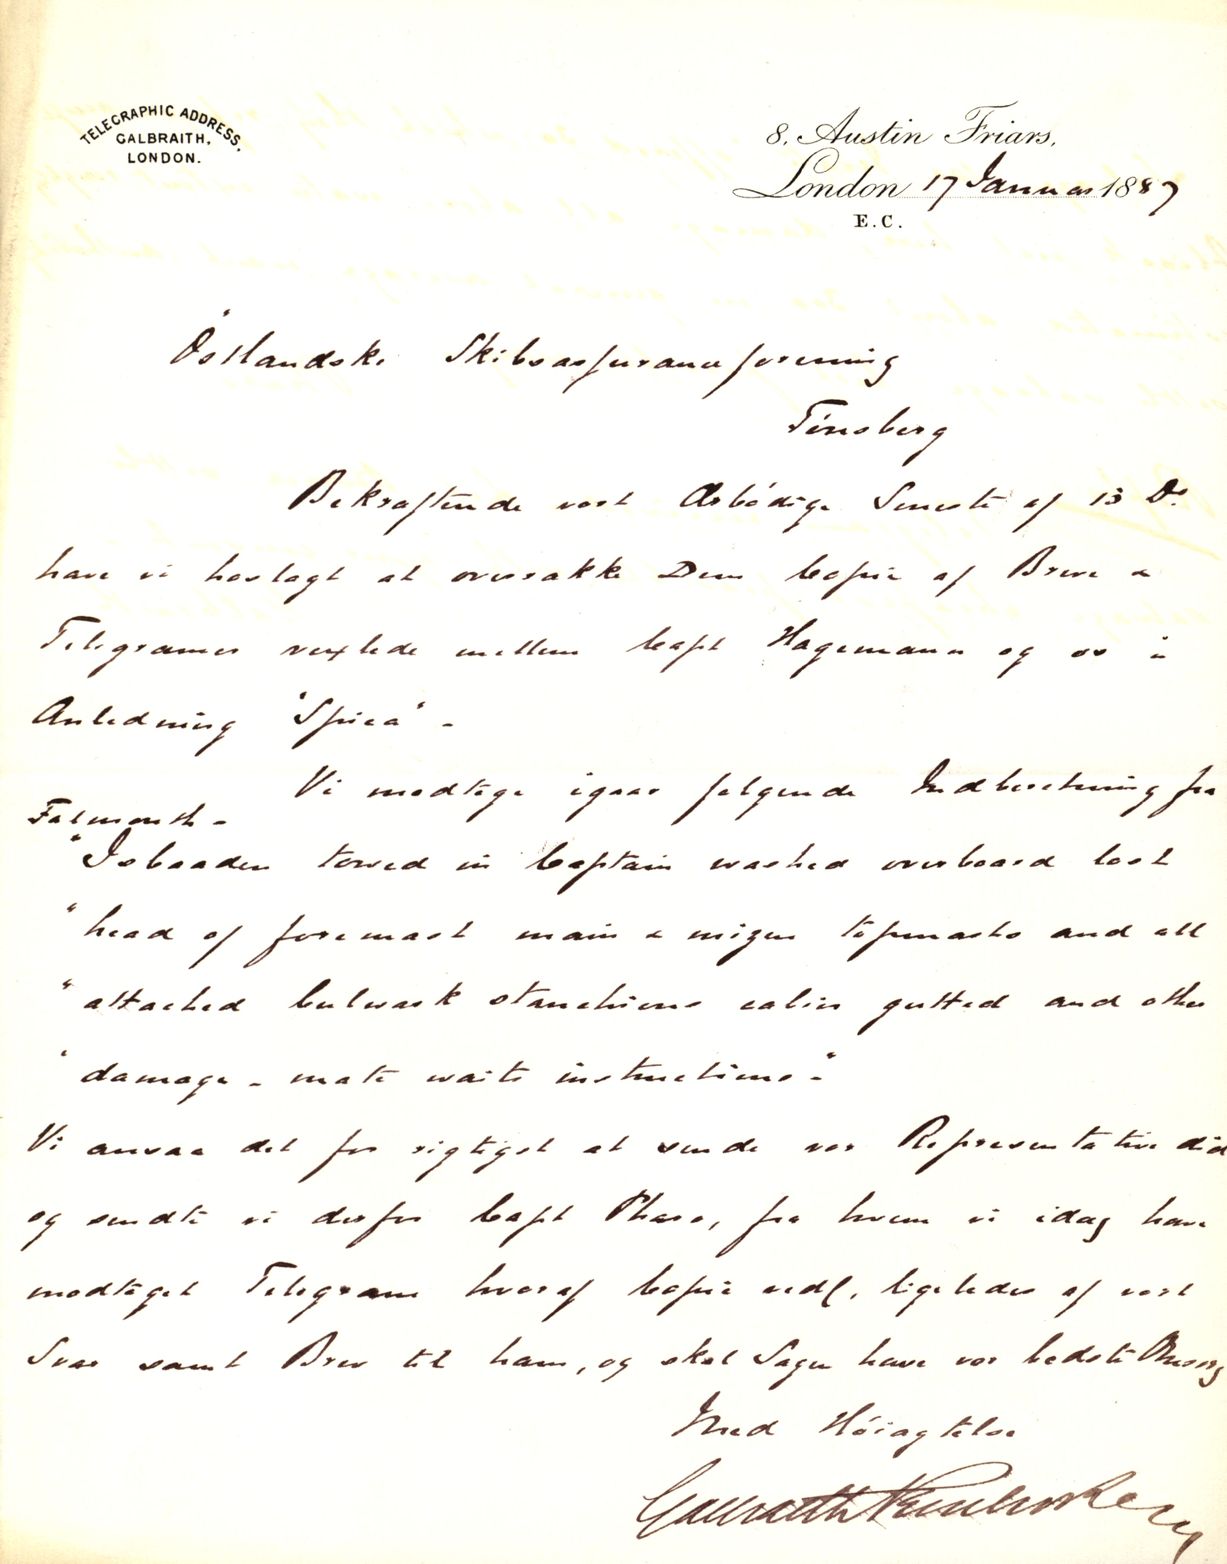 TELEGRAPHIC ADDRESS,
GALBRAITH,
LONDON.
8, Austin Friars,
London 17 Januar 1887
E.C.
Östlandske Skibsassuranceforening
Tönsberg
Bekræftende vort Ærbödige Seneste af 13 Ds
have vi hoslagt at oversække Dem Copie af Breve &
Telegramer vexlede mellem Capt Hagemann og os i
Anledning "Spica" -
Vi modtoge igaar følgende Indberetning fra
Falmouth -
"Isbaaden towed in Captain washed overboard lost
"head of foremast main & mizen topmasts and all
"attached bulwark stanchions cabin gutted and other
"damage - mate waits instructions -"
Vi ansaa det for rigtigst at sende vor Representative did
og sendte vi derfor Capt Phare, fra hvem vi idag have
modtaget Telegram hvoraf Copie vedl, ligeledes af vort
Svar samt Brev til ham, og skal Sagen have vor bedste Omsorg
Med Höiagtelse
Galbraith Pembroke